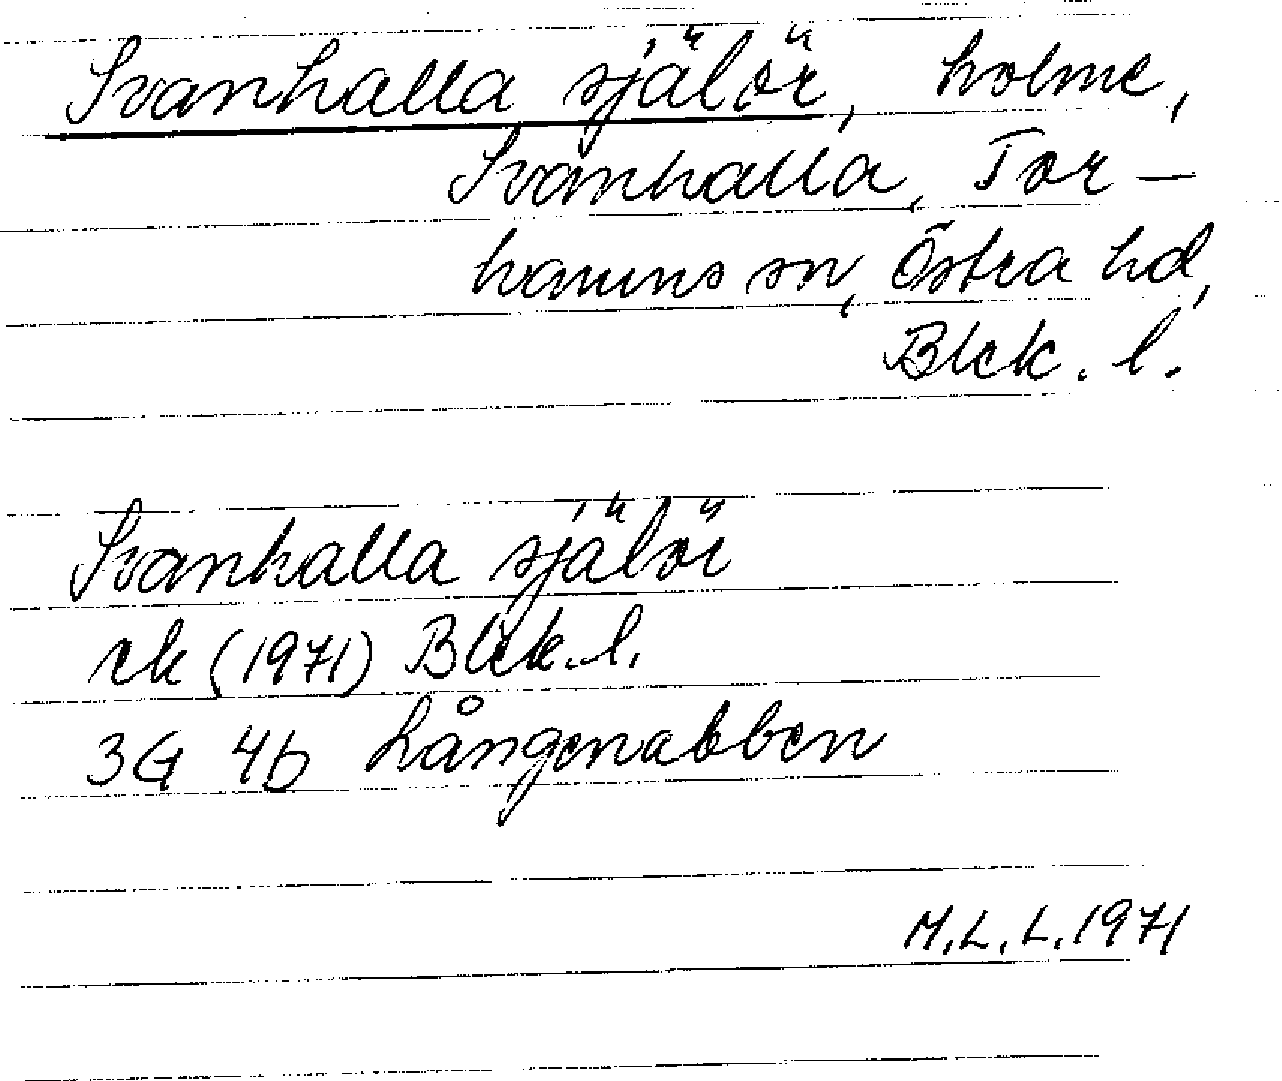 Svanhalla själör, holme,
Svanhalla, Tor-
hamns sn, Östra hd,
Blek. l.
Svanhalla själör
ek (1971) Blek. l.
3G 4b Långenabben
M.L.L. 1971